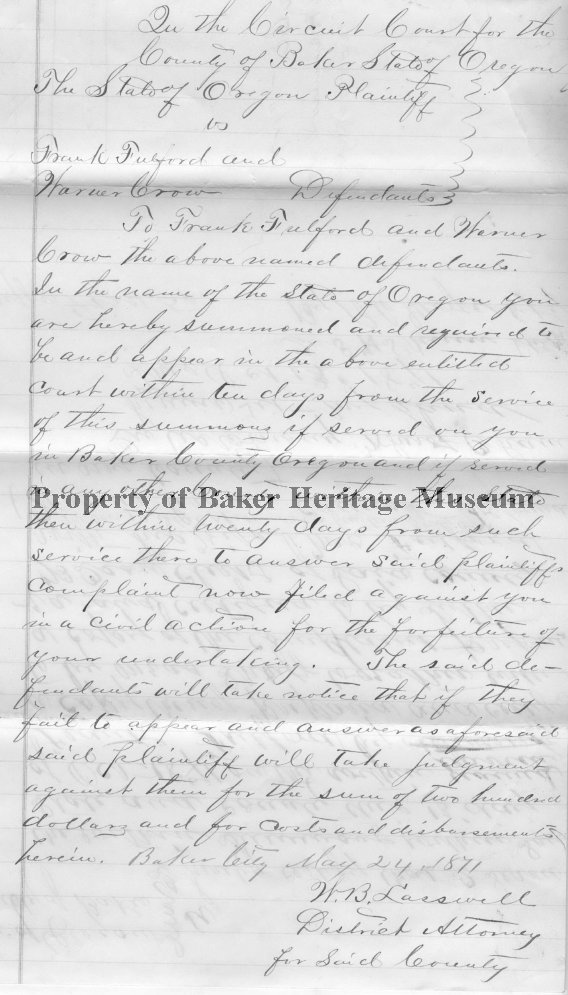 In the Circuit Court for the
County of Baker State of Oregon
The State of Oregon Plaintiff
vs
Frank Fulford and
Warner Crow Defendants
To Frank Fulford and Warner
Crow the above named defendants.
In the name of the State of Oregon you
are hereby summoned and required to
be and appear in the above entitled
court within ten days from the service
of this summons if served on you
in Baker County Oregon and if served
Property of Baker Heritage Museum
then within twenty days from such
service there to answer said plaintiffs
complaint now filed against you
in a civil action for the forfeiture of
your undertaking. The said de-
fendants will take notice that if they
fail to appear and answer as aforesaid
said plaintiff will take judgment
against them for the sum of two hundred
dollars and for costs and disbursements
herein. Baker City May 24, 1871
W.B. Lasswell
District Attorney
for Said County